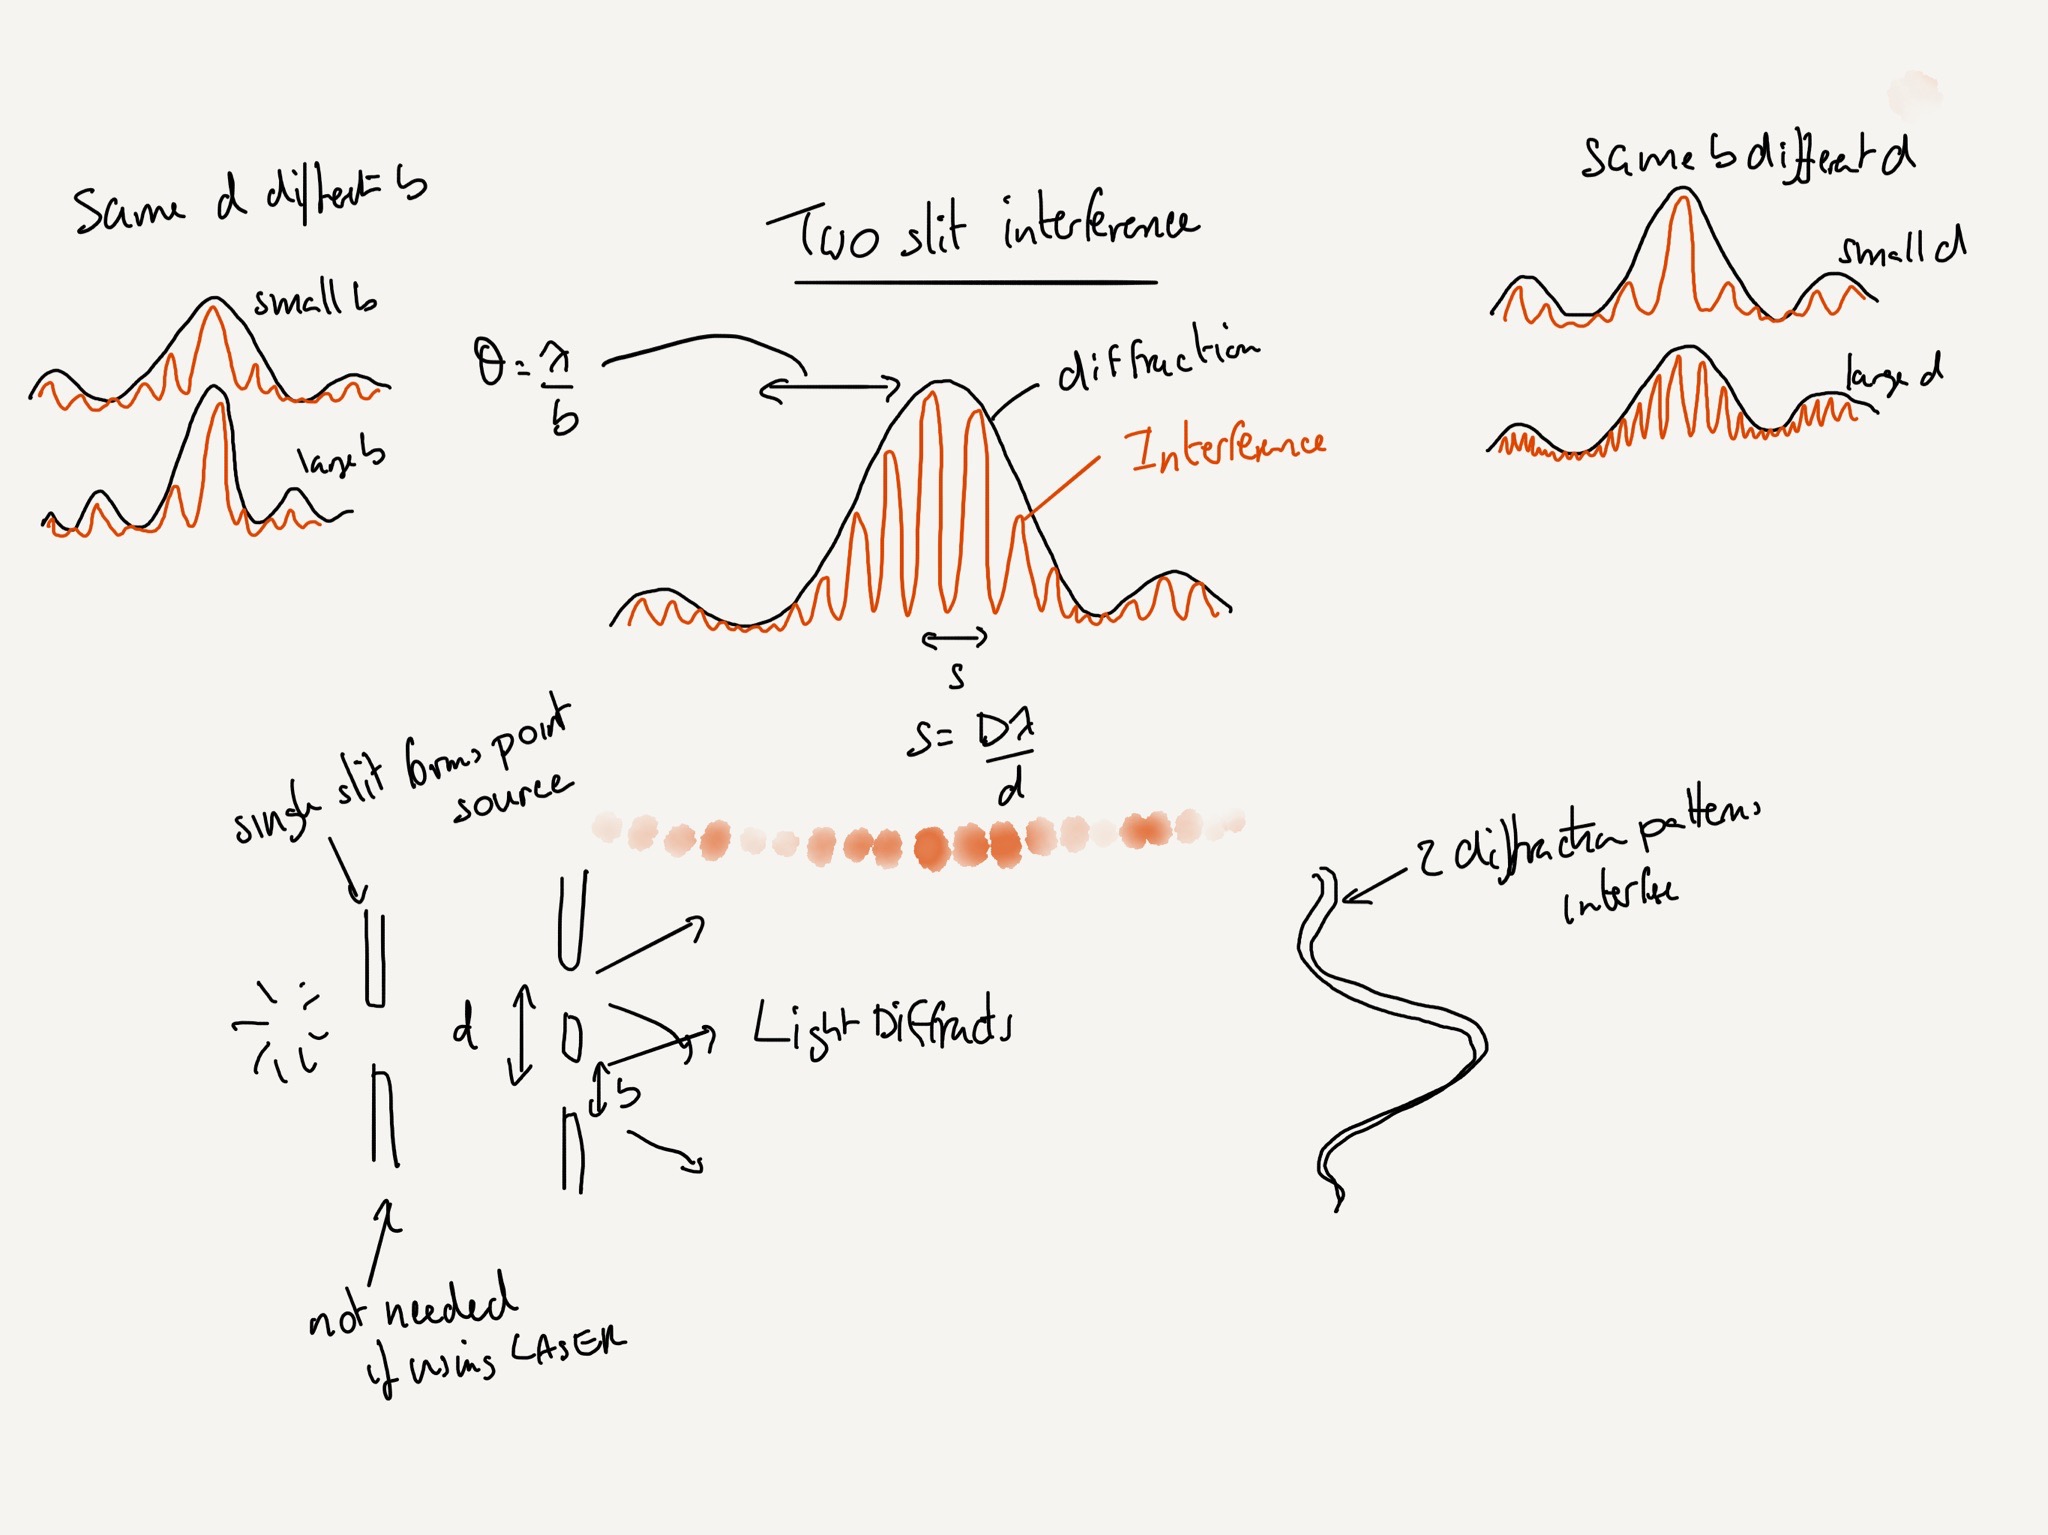 Same d different b
small b
large b
Two slit interference
θ = λ/b
diffraction
Interference
s
s = Dλ/d
same b different d
small d
large d
single slit forms point
source
d
b
Light Diffracts
2 diffraction patterns
interfere
not needed
if using LASER